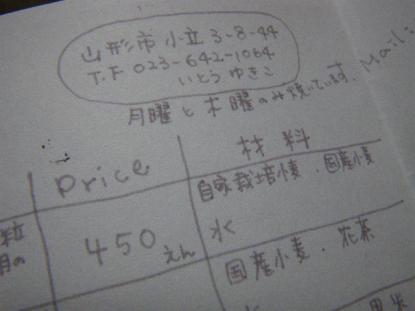 山形市 小立 3-8-44
T.F 023-642-1064
いとう ゆきこ
月曜と木曜のみ焼いています。
Mail:
Price
材料
自家栽培小麦・国産小麦
水
450えん
粒
国産小麦・